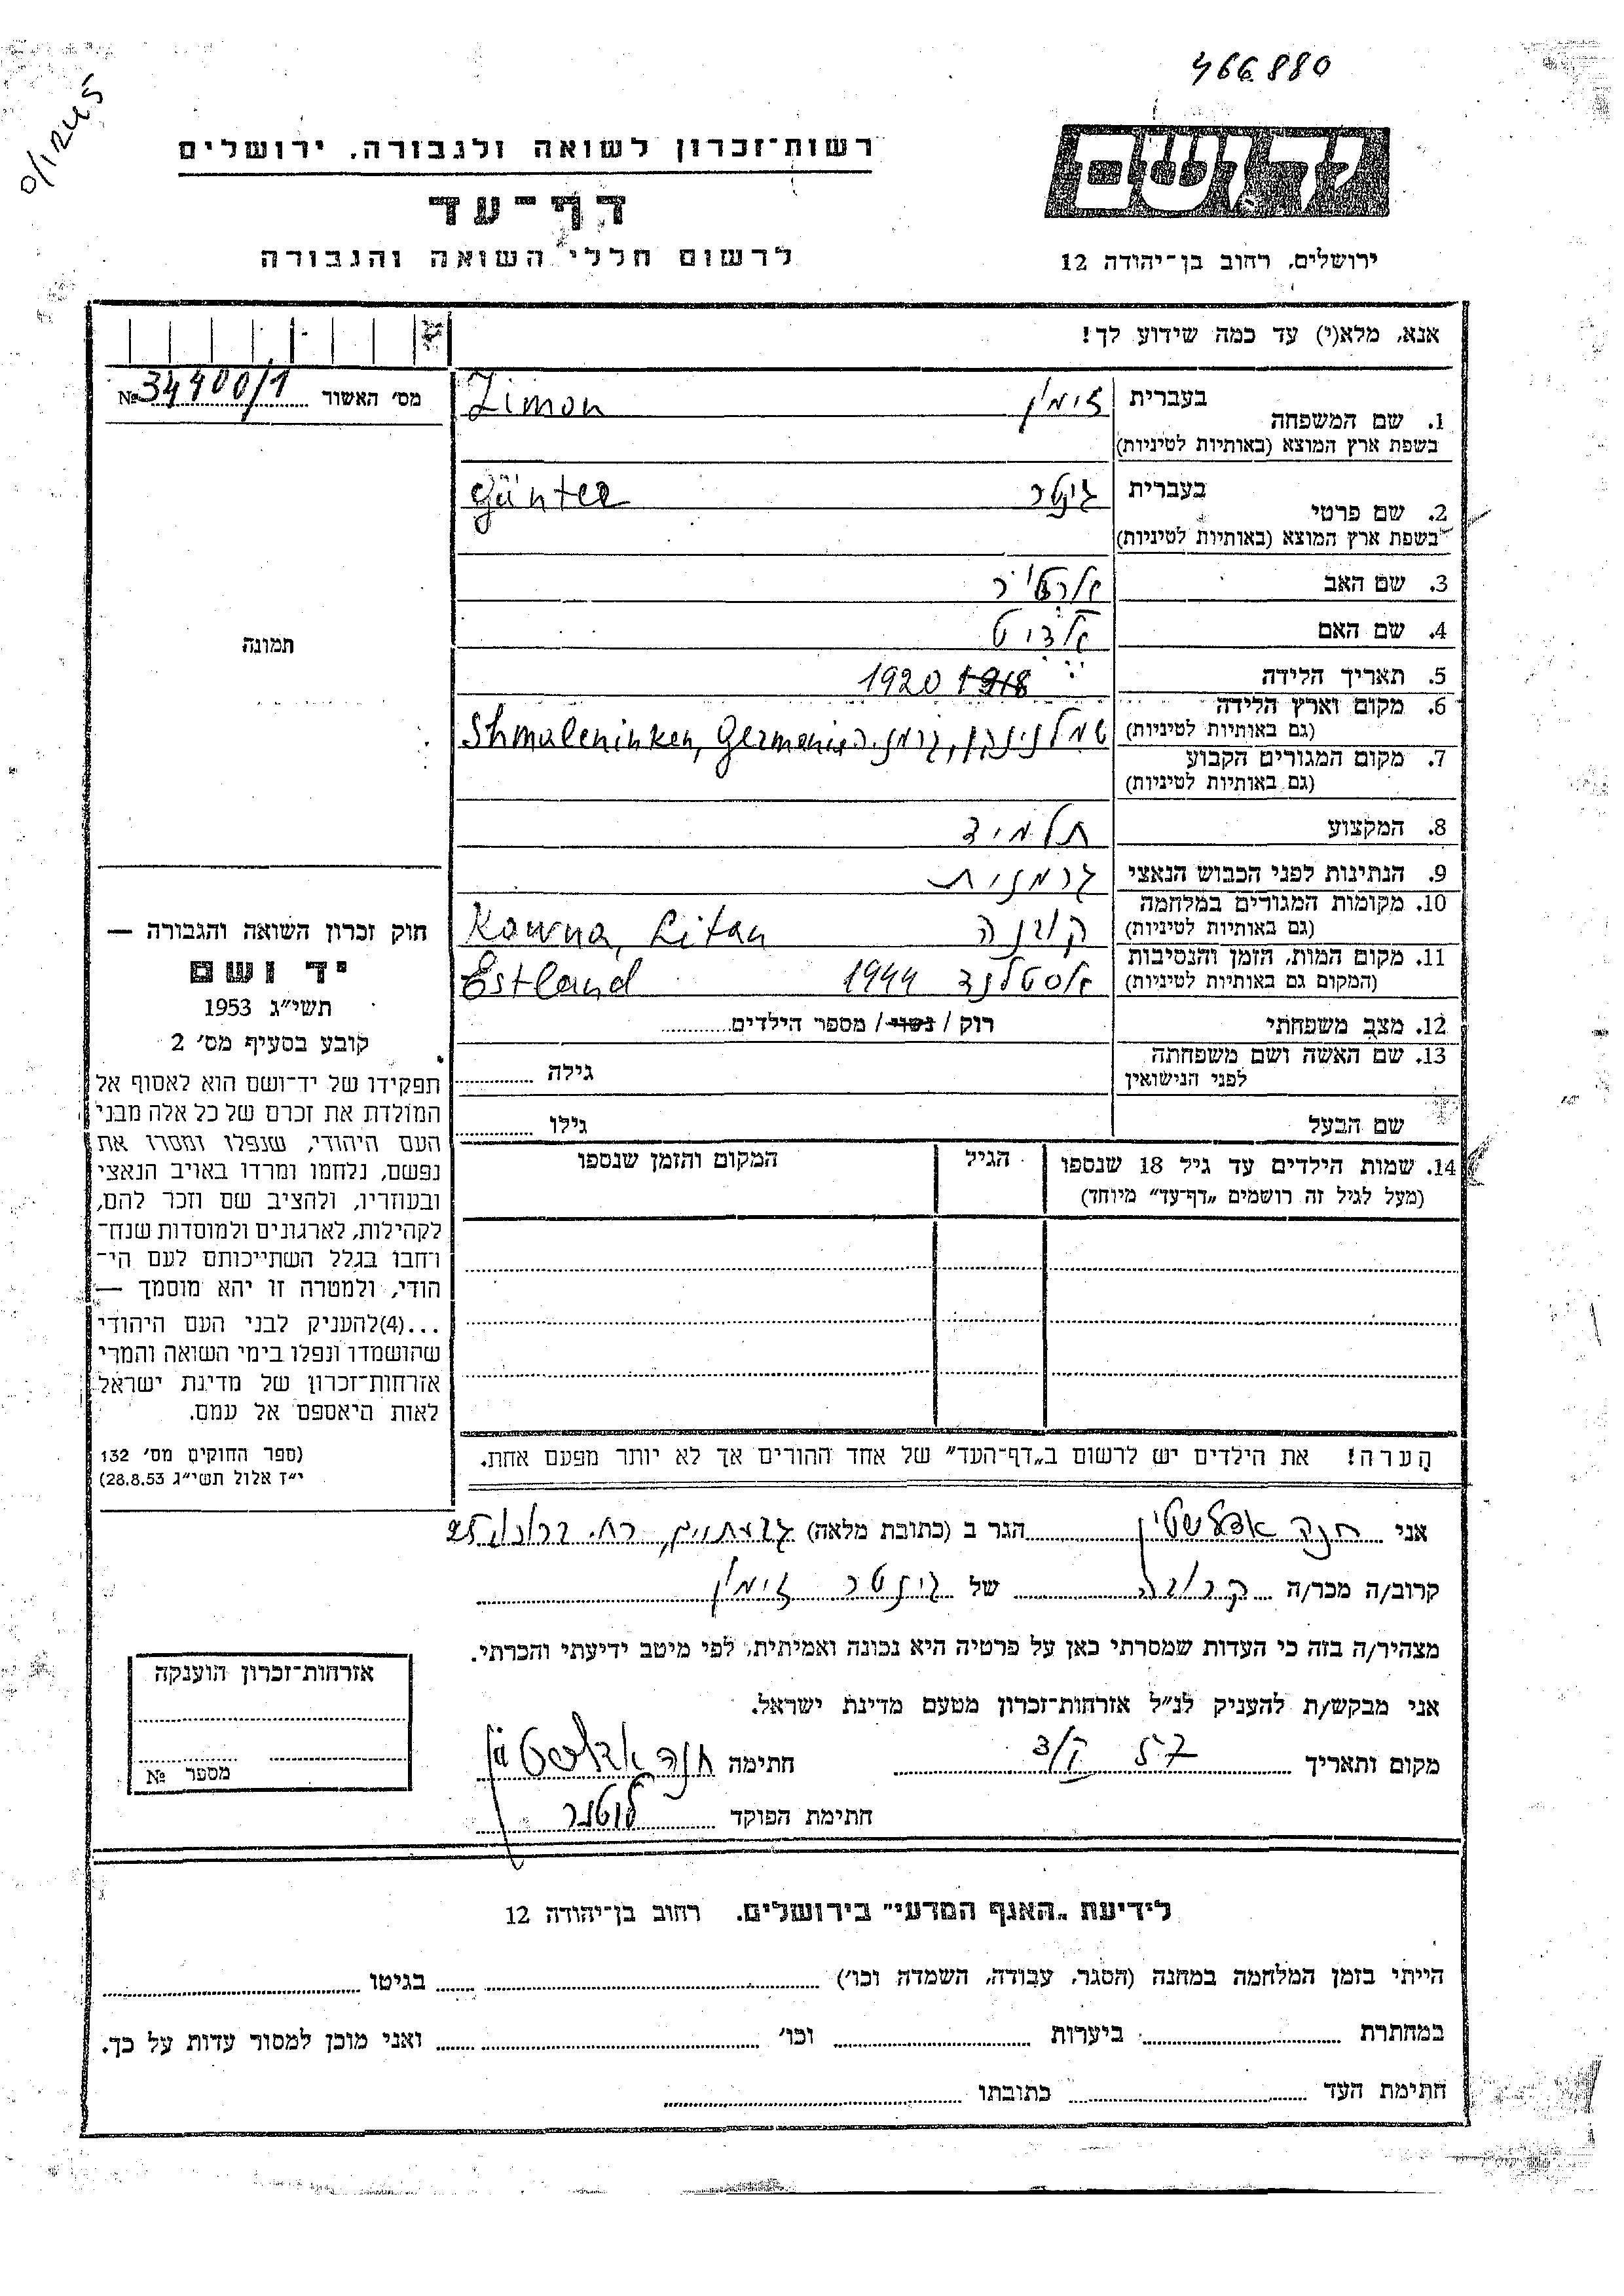 466880
0/1245
יד ושם
רשות־זכרון לשואה ולגבורה, ירושלים
דף־עד
לרשום חללי השואה והגבורה
ירושלים, רחוב בן־יהודה 12
אנא, מלא(י) עד כמה שידוע לך!
מס׳ האשור №34400/1
1. שם המשפחה בעברית זימון Zimon
בשפת ארץ המוצא (באותיות לטיניות)
2. שם פרטי בעברית גינטר Günter
בשפת ארץ המוצא (באותיות לטיניות)
3. שם האב
4. שם האם
5. תאריך הלידה 1918 1920
6. מקום וארץ הלידה (גם באותיות לטיניות) שמלנינקן, גרמניה Shmaleninken, Germania
7. מקום המגורים הקבוע (גם באותיות לטיניות)
8. המקצוע תלמיד
9. הנתינות לפני הכבוש הנאצי גרמנית
10. מקומות המגורים במלחמה (גם באותיות לטיניות) קובנה Kowna, Litau
11. מקום המות, הזמן והנסיבות (המקום גם באותיות לטיניות) אסטלנד 1944 Estland
12. מצב משפחתי רוק / נשוי / מספר הילדים
13. שם האשה ושם משפחתה לפני הנישואין גילה
שם הבעל גילו
14. שמות הילדים עד גיל 18 שנספו (מעל לגיל זה רושמים „דף־עד״ מיוחד) הגיל המקום והזמן שנספו
הערה! את הילדים יש לרשום ב„דף־העד״ של אחד ההורים אך לא יותר מפעם אחת.
תמונה
חוק זכרון השואה והגבורה —
יד ושם
תשי״ג 1953
קובע בסעיף מס׳ 2
תפקידו של יד־ושם הוא לאסוף אל
המולדת את זכרם של כל אלה מבני
העם היהודי, שנפלו ומסרו את
נפשם, נלחמו ומרדו באויב הנאצי
ובעוזריו, ולהציב שם וזכר להם,
לקהילות, לארגונים ולמוסדות שנח־
רחבו בגלל השתייכותם לעם הי־
הודי, ולמטרה זו יהא מוסמך —
...(4)להעניק לבני העם היהודי
שהושמדו ונפלו בימי השואה והמרי
אזרחות־זכרון של מדינת ישראל
לאות היאספם אל עמם.
(ספר החוקים מס׳ 132
י״ז אלול תשי״ג 28.8.53)
אני חנה אדלשטיין הגר ב (כתובת מלאה) גבעתיים, רח׳
קרוב/ה מכר/ה קרובה של גינטר זימון
מצהיר/ה בזה כי העדות שמסרתי כאן על פרטיה היא נכונה ואמיתית, לפי מיטב ידיעתי והכרתי.
אני מבקש/ת להעניק לנ״ל אזרחות־זכרון מטעם מדינת ישראל.
מקום ותאריך חתימה חנה אדלשטיין
חתימת הפוקד
אזרחות־זכרון הוענקה
מספר №
לידיעת „האגף המדעי״ בירושלים. רחוב בן־יהודה 12
הייתי בזמן המלחמה במחנה (הסגר, עבודה, השמדה וכו׳) בגיטו
במחתרת ביערות וכו׳ ואני מוכן למסור עדות על כך.
חתימת העד כתובתו